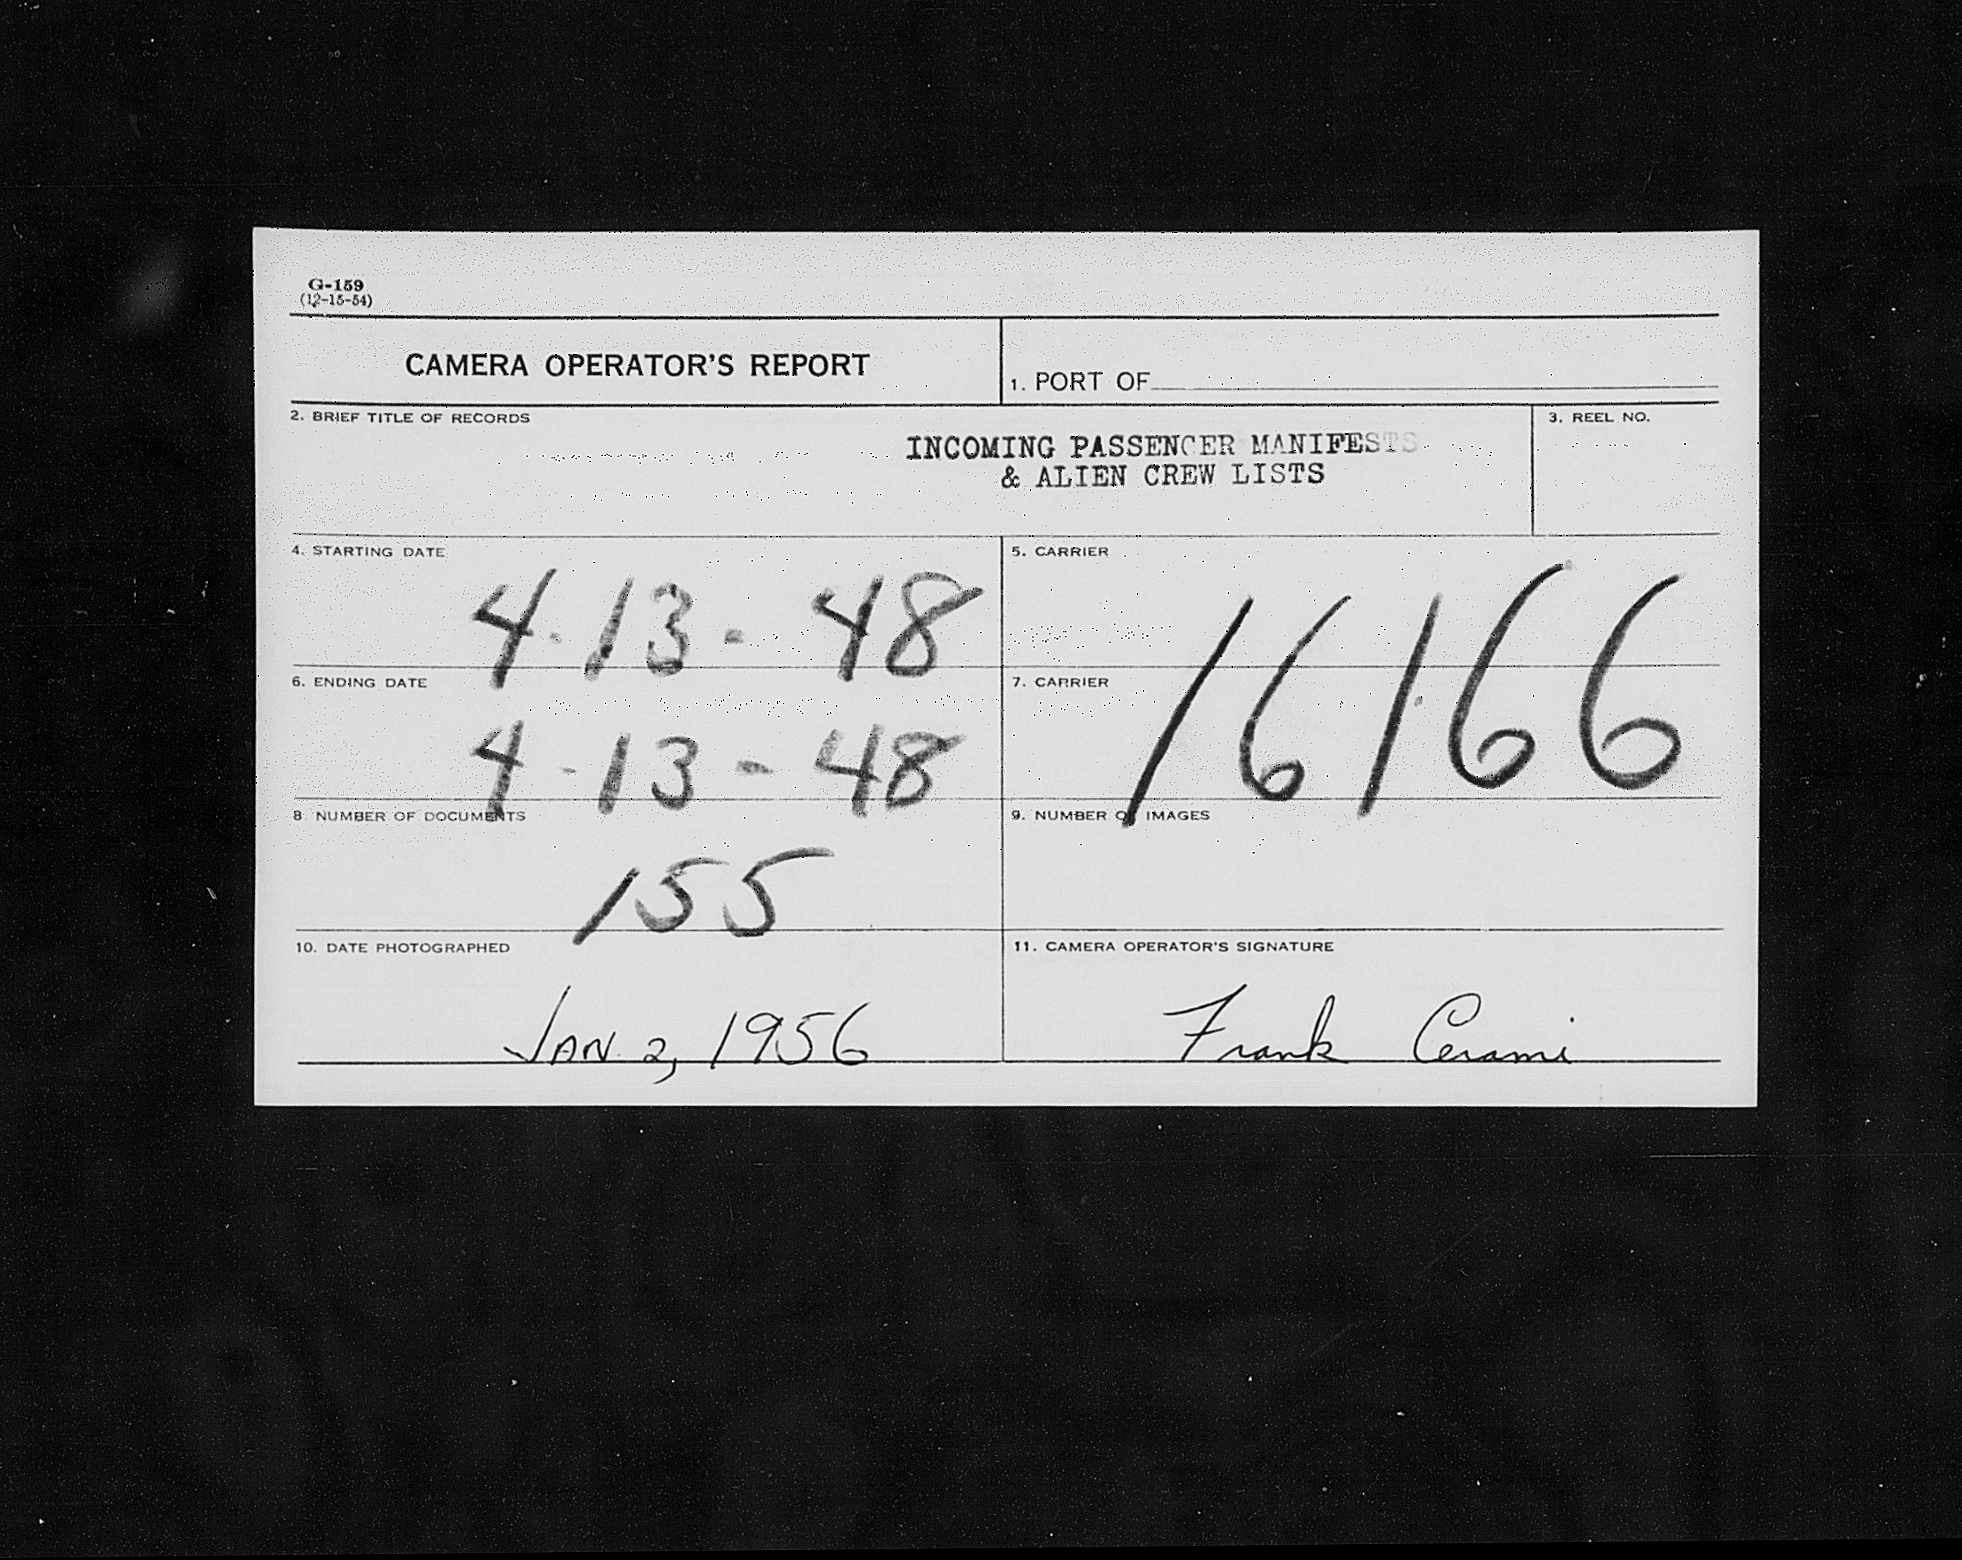 G-159
(12-15-54)
CAMERA OPERATOR'S REPORT
1. PORT OF
2. BRIEF TITLE OF RECORDS
3. REEL NO.
INCOMING PASSENGER MANIFESTS
& ALIEN CREW LISTS
4. STARTING DATE
4-13-48
5. CARRIER
16166
6. ENDING DATE
4-13-48
7. CARRIER
8 NUMBER OF DOCUMENTS
155
9. NUMBER OF IMAGES
10. DATE PHOTOGRAPHED
JAN. 2, 1956
11. CAMERA OPERATOR'S SIGNATURE
Frank Cerami